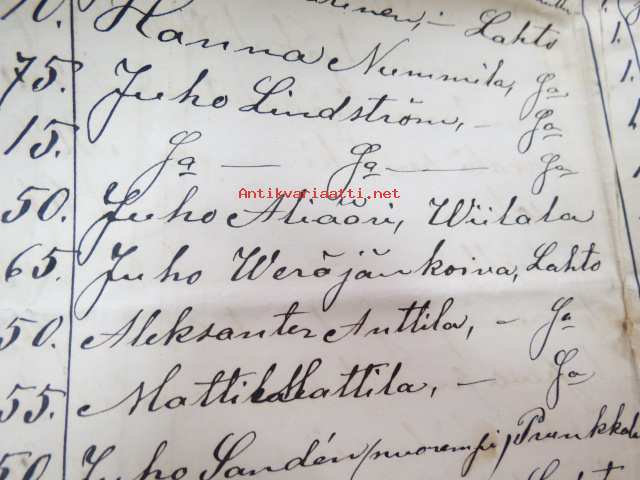 Lahto
75. Hanna Nummila, Ja
15. Juho Lindström, — Ja
Ja — Ja — Ja
50. Juho Aliääri, Wiilala
65. Juho Weräjänkoiva, Lahto
50. Aleksanter Anttila, — Ja
55. Matti Mattila, — Ja
50. Juho Sandén /nuorempi/ Prunkkala
Antikvariaatti.net